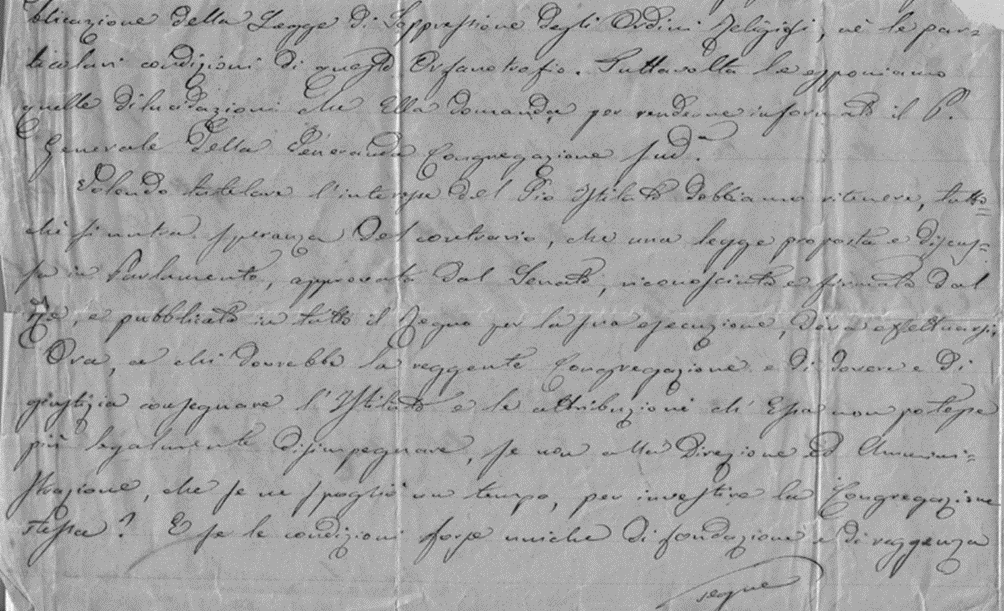 blicazione della Legge di Soppressione degli Ordini Religiosi, nè le par=
ticolari condizioni di questo Orfanotrofio. Tuttavolta le esponiamo
quelle dilucidazioni che Ella domanda per renderne informato il P.
Generale della Veneranda Congregazione sud.a
Volendo tutelare l'interesse del Pio Istituto dobbiamo ritenere, tutto=
chè si nutra speranza del contrario, che una legge proposta e discus=
sa in Parlamento, approvata dal Senato, riconosciuta e firmata dal
Re, e pubblicata in tutto il Regno per la sua esecuzione, deva effettuarsi.
Ora, a chi dovrebbe la reggente Congregazione e di dovere e di
giustizia consegnare l'Istituto e le attribuzioni ch'Essa non potesse
più legalmente disimpegnare, se non alla Direzione ed Ammini=
strazione, che se ne spogliò un tempo, per investire la Congregazione
stessa? E se le condizioni forse uniche di fondazione e di reggenza
segue